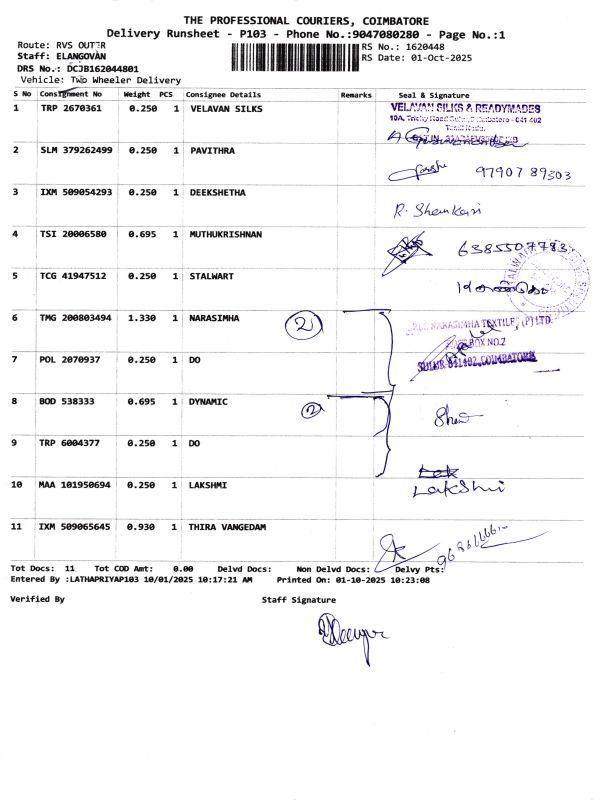 THE PROFESSIONAL COURIERS, COIMBATORE
Delivery Runsheet - P103 - Phone No.:9047080280 - Page No.:1
Route: RVS OUTER
RS No.: 1620448
Staff: ELANGOVAN
RS Date: 01-Oct-2025
DRS No.: DCJB162044801
Vehicle: Two Wheeler Delivery
S No Consignment No Weight PCS Consignee Details Remarks Seal & Signature
1 TRP 2670361 0.250 1 VELAVAN SILKS
VELAVAN SILKS & READYMADES
2 SLM 379262499 0.250 1 PAVITHRA
97907 89303
3 IXM 509054293 0.250 1 DEEKSHETHA
R. Shenkari
4 TSI 20006580 0.695 1 MUTHUKRISHNAN
6385507783
5 TCG 41947512 0.250 1 STALWART
6 TMG 200803494 1.330 1 NARASIMHA
2
NARASIMHA TEXTILE (P) LTD.
BOX NO.2
7 POL 2070937 0.250 1 DO
SULUR-641402, COIMBATORE
8 BOD 538333 0.695 1 DYNAMIC
2
9 TRP 6004377 0.250 1 DO
10 MAA 101950694 0.250 1 LAKSHMI
LakShmi
11 IXM 509065645 0.930 1 THIRA VANGEDAM
Tot Docs: 11 Tot COD Amt: 0.00 Delvd Docs: Non Delvd Docs: Delvy Pts:
Entered By :LATHAPRIYAP103 10/01/2025 10:17:21 AM Printed On: 01-10-2025 10:23:08
Verified By Staff Signature